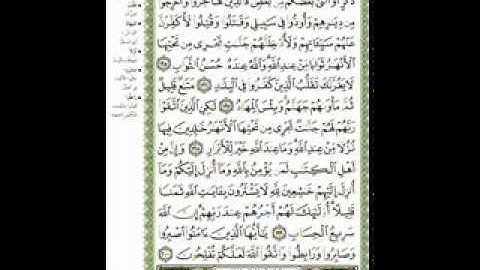 ذَكَرٍ أَوْ أُنثَىٰ بَعْضُكُم مِّنۢ بَعْضٍ فَٱلَّذِينَ هَاجَرُوا۟ وَأُخْرِجُوا۟
مِن دِيَـٰرِهِمْ وَأُوذُوا۟ فِى سَبِيلِى وَقَـٰتَلُوا۟ وَقُتِلُوا۟ لَأُكَفِّرَنَّ
عَنْهُمْ سَيِّـَٔاتِهِمْ وَلَأُدْخِلَنَّهُمْ جَنَّـٰتٍ تَجْرِى مِن تَحْتِهَا
ٱلْأَنْهَـٰرُ ثَوَابًا مِّنْ عِندِ ٱللَّهِ وَٱللَّهُ عِندَهُۥ حُسْنُ ٱلثَّوَابِ ١٩٥
لَا يَغُرَّنَّكَ تَقَلُّبُ ٱلَّذِينَ كَفَرُوا۟ فِى ٱلْبِلَـٰدِ ١٩٦ مَتَـٰعٌ قَلِيلٌ
ثُمَّ مَأْوَىٰهُمْ جَهَنَّمُ وَبِئْسَ ٱلْمِهَادُ ١٩٧ لَـٰكِنِ ٱلَّذِينَ ٱتَّقَوْا۟
رَبَّهُمْ لَهُمْ جَنَّـٰتٌ تَجْرِى مِن تَحْتِهَا ٱلْأَنْهَـٰرُ خَـٰلِدِينَ فِيهَا
نُزُلًا مِّنْ عِندِ ٱللَّهِ وَمَا عِندَ ٱللَّهِ خَيْرٌ لِّلْأَبْرَارِ ١٩٨ وَإِنَّ مِنْ
أَهْلِ ٱلْكِتَـٰبِ لَمَن يُؤْمِنُ بِٱللَّهِ وَمَآ أُنزِلَ إِلَيْكُمْ وَمَآ
أُنزِلَ إِلَيْهِمْ خَـٰشِعِينَ لِلَّهِ لَا يَشْتَرُونَ بِـَٔايَـٰتِ ٱللَّهِ ثَمَنًا
قَلِيلًا أُو۟لَـٰٓئِكَ لَهُمْ أَجْرُهُمْ عِندَ رَبِّهِمْ إِنَّ ٱللَّهَ
سَرِيعُ ٱلْحِسَابِ ١٩٩ يَـٰٓأَيُّهَا ٱلَّذِينَ ءَامَنُوا۟ ٱصْبِرُوا۟
وَصَابِرُوا۟ وَرَابِطُوا۟ وَٱتَّقُوا۟ ٱللَّهَ لَعَلَّكُمْ تُفْلِحُونَ ٢٠٠